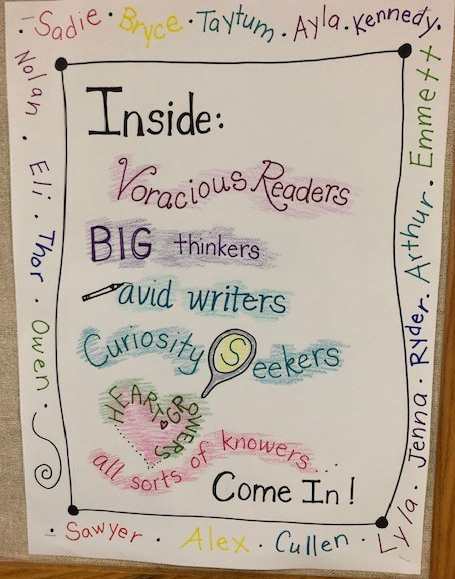 Sadie · Bryce · Taytum · Ayla · Kennedy ·
Emmett · Arthur · Ryder · Jenna · Lyla ·
Cullen · Alex · Sawyer ·
Nolan · Eli · Thor · Owen ·
Inside:
Voracious Readers
BIG thinkers
avid writers
Curiosity Seekers
HEART GROWERS
all sorts of knowers...
Come In!